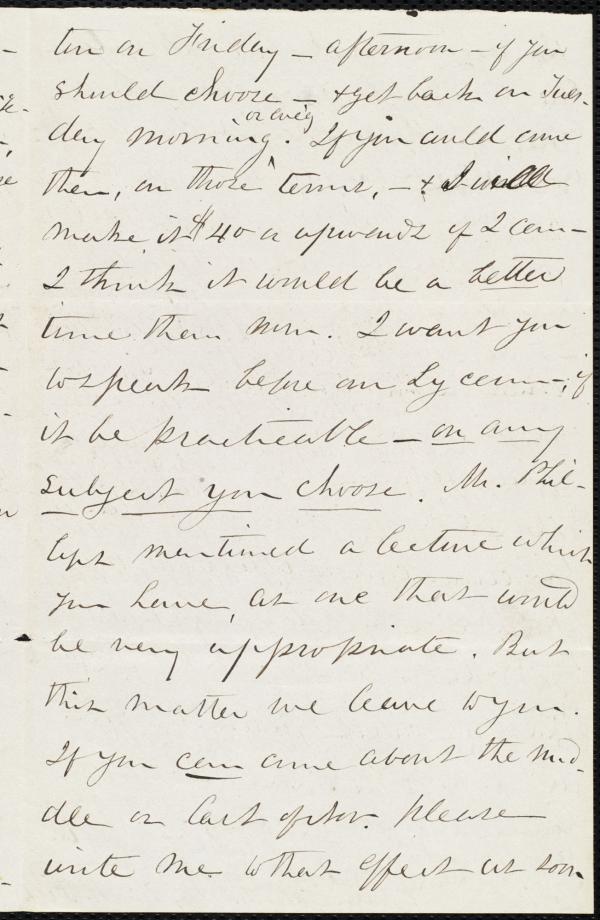 ton on Friday — afternoon — if you
should choose — & get back on Tues-
day morning. If you could come
or eve'g
then, on those terms, — & I will
make it $40 or upwards if I can —
I think it would be a better
time then now. I want you
to speak before our Lyceum —, if
it be practicable — on any
subject you choose. Mr. Phil-
lips mentioned a lecture which
you have, as one that would
be very appropriate. But
this matter we leave to you.
If you can come about the mid-
dle or last of Nov. please
write me to that effect as soon